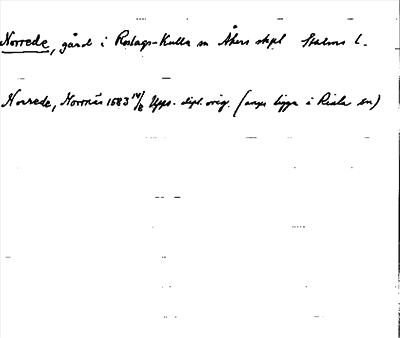 Norrede, gård i Roslags-Kulla sn Åkers skpl Sthlms l.
Norrede, Norrnäs 1683 14/8 Upps. dipl. orig. (anges ligga i Riala sn)